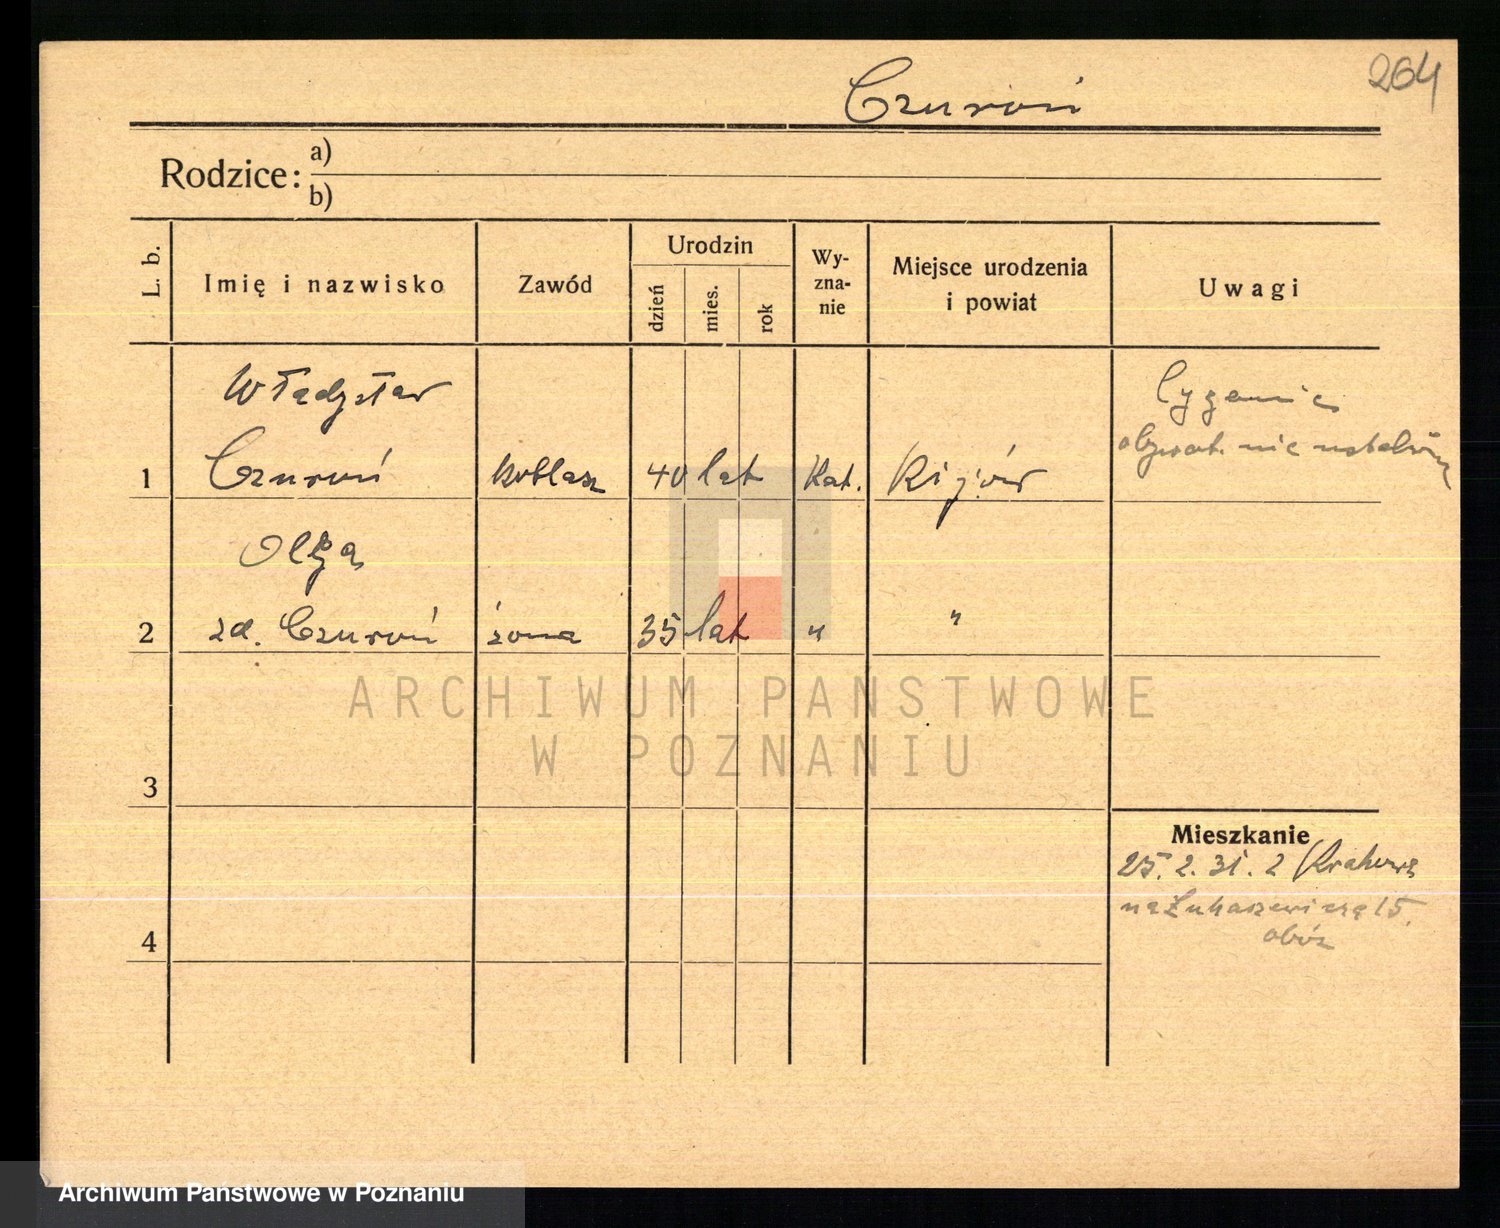 264
Czuroń
Rodzice: a)
b)
L. b.
Imię i nazwisko
Zawód
Urodzin
dzień
mies.
rok
Wy-
zna-
nie
Miejsce urodzenia
i powiat
Uwagi
Władysław
Cyganie
obywat. nie ustalone
1 Czuroń kotlasz 40 lat Kat. Kijów
Olga
2 zd. Czuroń żona 35 lat " "
3
Mieszkanie
25. 2. 31. z Krakowa
na Łukaszewicza 15.
obóz
4
ARCHIWUM PAŃSTWOWE
W POZNANIU
Archiwum Państwowe w Poznaniu